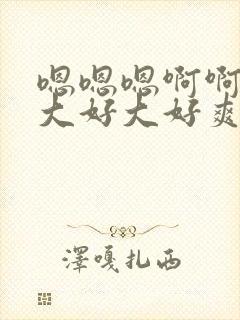 嗯嗯嗯啊啊
大好大好爽
澤嘎扎西